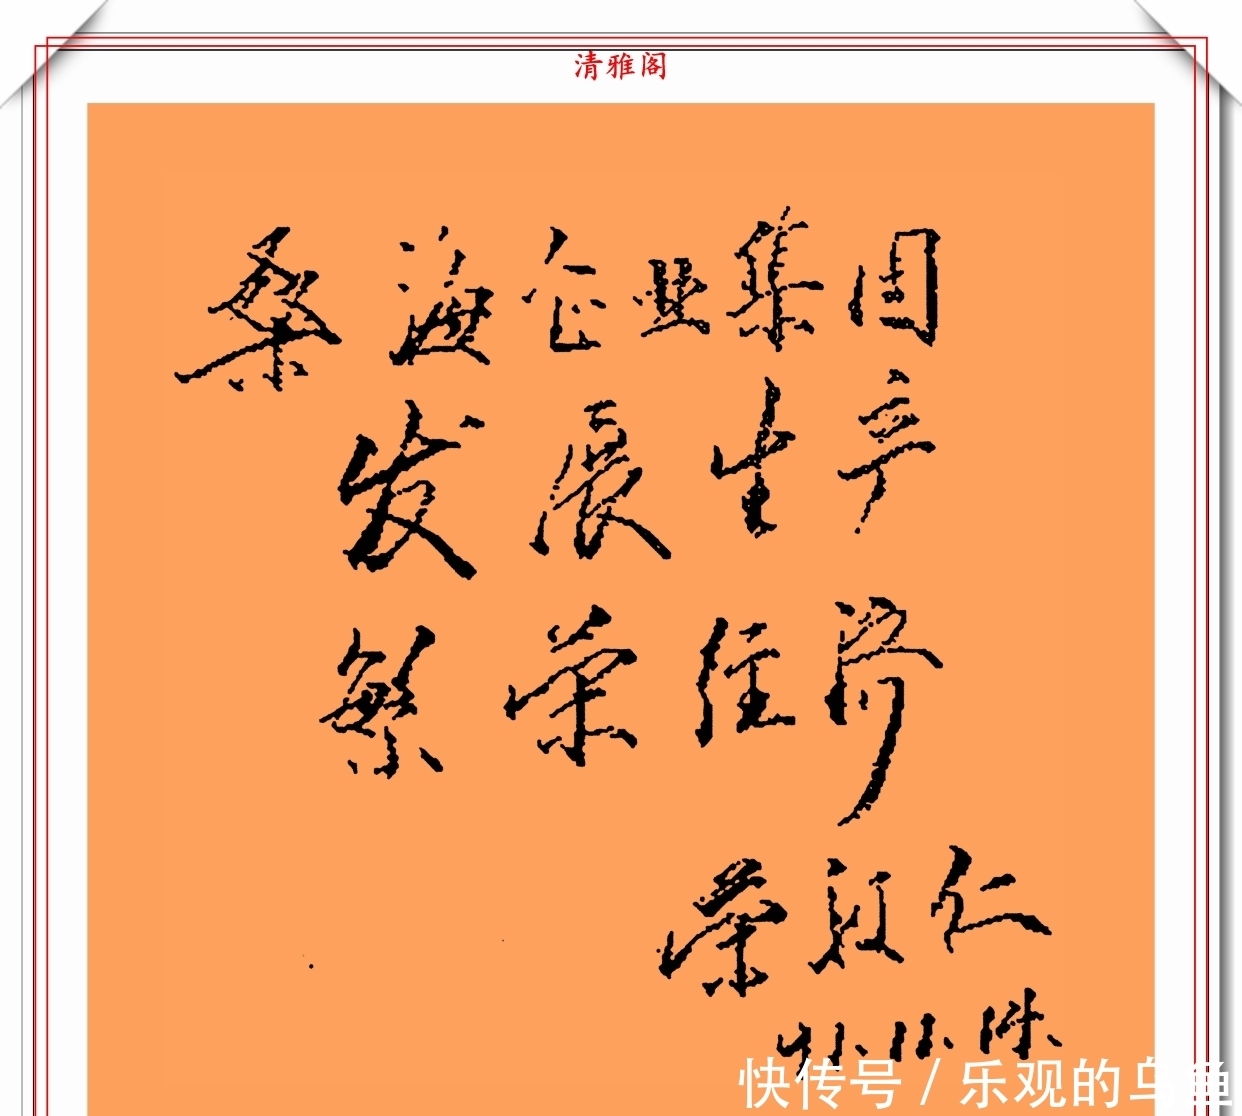 清雅阁
桑海企业集团
发展生产
繁荣经济
荣毅仁
快传号 / 乐观的乌鱼